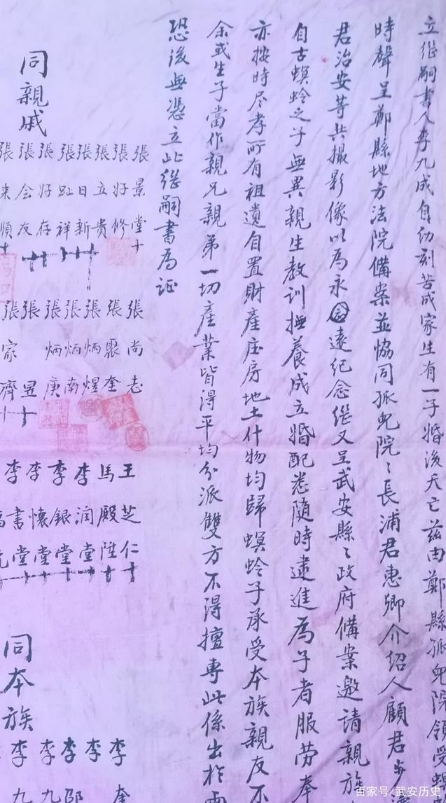 立继嗣書人李九成自幼刻苦成家生有一子婚後夭亡兹由鄭縣孤兒院領受螟
時聲呈鄭縣地方法院備案並協同孤兒院々長浦君惠卿介紹人顧君步
君治安等共撮影像以為永遠紀念继又呈武安縣々政府備案邀請親族
自古螟蛉之子無異親生教訓撫養成立婚配悉随時逮進為子者服劳奉
亦按時尽孝所有祖遺自置財產庄房地土什物均歸螟蛉子承受本族親友不
余或生子當作親兄親弟一切產業皆得平均分派雙方不得擅專此係出於両
恐後無憑立此继嗣書為证
同親戚
張景堂
張好修
張立貴
張日新
張趾祥
張好存
張會友
張来順
張尚志
張聚奎
張炳煌
張炳南
張炳庚
張昱
張家齊
王芝仁
馬殿陞
李润堂
李银堂
李懷堂
李書堂
同本族
李奎
李
李郎
李九
李九
百家号/武安历史